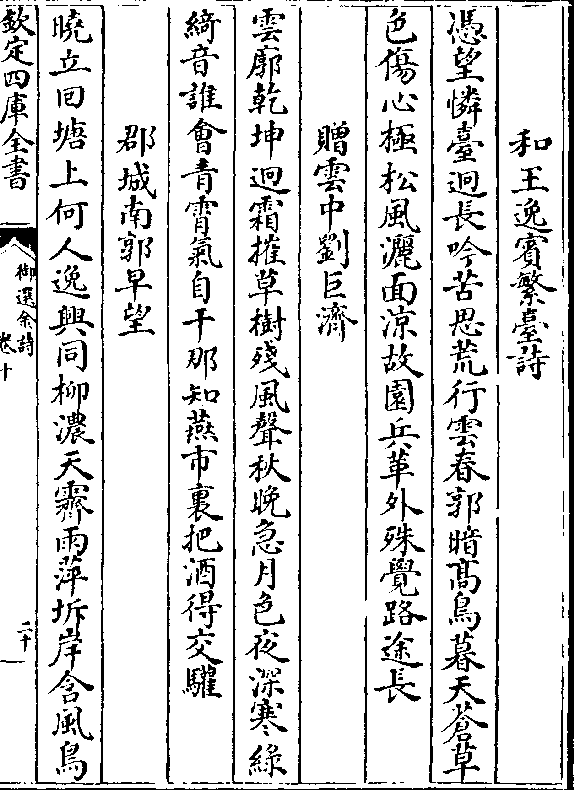 和王逸賓繁臺詩
憑望憐臺迥長吟苦思荒行雲春郭暗髙鳥暮天蒼草
色傷心極松風灑面涼故園兵革外殊覺路途長
贈雲中劉巨濟
雲廓乾坤迥霜摧草樹殘風聲秋晚急月色夜深寒緑
綺音誰會青霄氣自干那知燕市裏把酒得交驩
郡城南郭早望
曉立回塘上何人逸興同柳濃天霽雨萍坼岸含風鳥
欽定四庫全書
御選金詩
卷十
二十